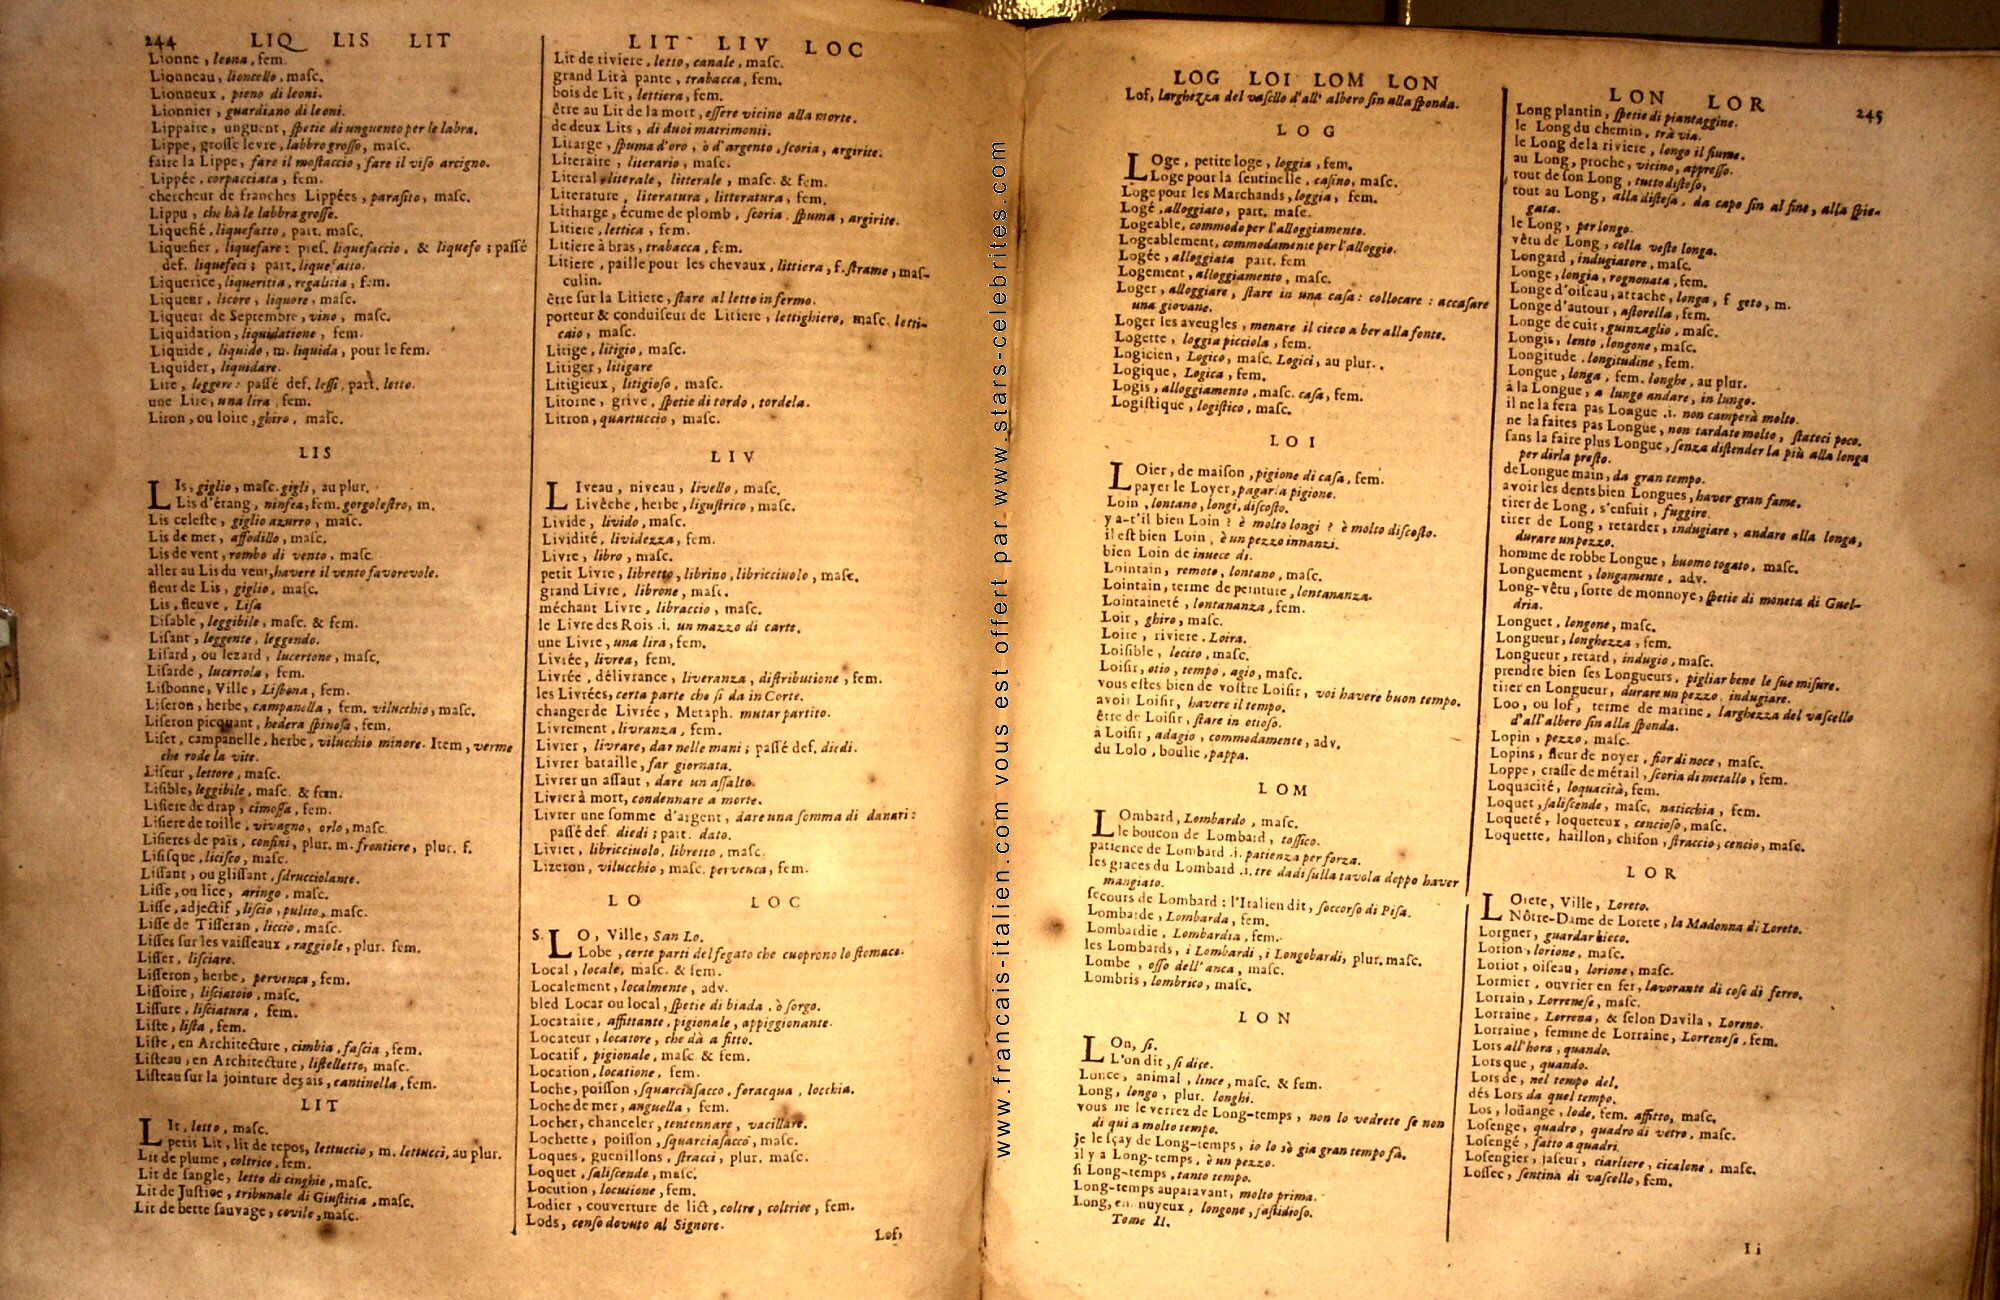 244 LIQ LIS LIT
Lionne, leona, fem.
Lionneau, lioncello, masc.
Lionneux, pieno di leoni.
Lionnier, guardiano di leoni.
Lippaire, unguent, spetie di unguento per le labra.
Lippe, grosse levre, labbro grosso, masc.
faire la Lippe, fare il mostaccio, fare il viso arcigno.
Lippée, corpacciata, fem.
chercheur de franches Lippées, parasito, masc.
Lippu, che hà le labbra grosse.
Liquefié, liquefatto, part. masc.
Liquefier, liquefare: pres. liquefaccio, & liquefo; passé
def. liquefeci; part. liquefatto.
Liquerice, liqueritia, regalitia, fem.
Liqueur, licore, liquore, masc.
Liqueur de Septembre, vino, masc.
Liquidation, liquidatione, fem.
Liquide, liquido, m. liquida, pour le fem.
Liquider, liquidare.
Lire, leggere: passé def. lessi, part. letto.
une Lire, una lira, fem.
Liron, ou loire, ghiro, masc.
LIS
LIs, giglio, masc. gigli, au plur.
Lis d'étang, ninfea, fem. gorgolestro, m.
Lis celeste, giglio azurro, masc.
Lis de mer, affodillo, masc.
Lis de vent, rombo di vento, masc.
aller au Lis du vent, havere il vento favorevole.
fleur de Lis, giglio, masc.
Lis, fleuve, Lisa
Lisable, leggibile, masc. & fem.
Lisant, leggente, leggendo.
Lisard, ou lezard, lucertone, masc.
Lisarde, lucertola, fem.
Lisbonne, Ville, Lisbona, fem.
Liseron, herbe, campanella, fem. vilucchio, masc.
Liseron picquant, hedera spinosa, fem.
Liset, campanelle, herbe, vilucchio minore. Item, verme
che rode la vite.
Liseur, lettore, masc.
Lisible, leggibile, masc. & fem.
Lisiere de drap, cimossa, fem.
Lisiere de toille, vivagno, orlo, masc.
Lisieres de païs, confini, plur. m. frontiere, plur. f.
Lisisque, licisco, masc.
Lissant, ou glissant, sdrucciolante.
Lisse, ou lice, aringo, masc.
Lisse, adjectif, liscio, pulito, masc.
Lisse de Tisseran, liccio, masc.
Lisses sur les vaisseaux, raggiole, plur. fem.
Lisser, lisciare.
Lisseron, herbe, pervenca, fem.
Lissoire, lisciatoio, masc.
Lissure, lisciatura, fem.
Liste, lista, fem.
Liste, en Architecture, cimbia, fascia, fem.
Listeau, en Architecture, listelletto, masc.
Listeau sur la jointure des ais, cantinella, fem.
LIT
LIt, letto, masc.
petit Lit, lit de repos, lettuccio, m. lettucci, au plur.
Lit de plume, coltrice, fem.
Lit de sangle, letto di cinghie, masc.
Lit de Justice, tribunale di Giustitia, masc.
Lit de bette sauvage, covile, masc.
LIT LIV LOC
Lit de riviere, letto, canale, masc.
grand Lit à pante, trabacca, fem.
bois de Lit, lettiera, fem.
être au Lit de la mort, essere vicino alla morte.
de deux Lits, di duoi matrimonii.
Litarge, spuma d'oro, ò d'argento, scoria, argirite.
Literaire, literario, masc.
Literal, literale, litterale, masc. & fem.
Literature, literatura, litteratura, fem.
Litharge, écume de plomb, scoria, spuma, argirite.
Litiere, lettica, fem.
Litiere à bras, trabacca, fem.
Litiere, paille pour les chevaux, littiera, f. strame, mas-
culin.
être sur la Litiere, stare al letto infermo.
porteur & conduiseur de Litiere, lettighiero, masc. letti-
caio, masc.
Litige, litigio, masc.
Litiger, litigare
Litigieux, litigioso, masc.
Litorne, grive, spetie di tordo, tordela.
Litron, quartuccio, masc.
LIV
LIveau, niveau, livello, masc.
Livêche, herbe, ligustrico, masc.
Livide, livido, masc.
Lividité, lividezza, fem.
Livre, libro, masc.
petit Livre, libretto, librino, libricciuolo, masc.
grand Livre, librone, masc.
méchant Livre, libraccio, masc.
le Livre des Rois .i. un mazzo di carte.
une Livre, una lira, fem.
Livrée, livrea, fem.
Livrée, délivrance, liveranza, distributione, fem.
les Livrées, certa parte che si da in Corte.
changer de Livrée, Metaph. mutar partito.
Livrement, livranza, fem.
Livrer, livrare, dar nelle mani; passé def. diedi.
Livrer bataille, far giornata.
Livrer un assaut, dare un assalto.
Livrer à mort, condennare a morte.
Livrer une somme d'argent, dare una somma di danari:
passé def. diedi; part. dato.
Livret, libricciuolo, libretto, masc.
Lizeron, vilucchio, masc. pervenca, fem.
LO LOC
S. LO, Ville, San Lo.
Lobe, certe parti del fegato che cuoprono lo stomaco.
Local, locale, masc. & fem.
Localement, localmente, adv.
bled Locar ou local, spetie di biada, ò sorgo.
Locataire, affittante, pigionale, appiggionante.
Locateur, locatore, che dà a fitto.
Locatif, pigionale, masc. & fem.
Location, locatione, fem.
Loche, poisson, squarciasacco, foracqua, locchia.
Loche de mer, anguella, fem.
Locher, chanceler, tentennare, vacillare.
Lochette, poisson, squarciasacco, masc.
Loques, guenillons, stracci, plur. masc.
Loquet, saliscende, masc.
Locution, locutione, fem.
Lodier, couverture de lict, coltre, coltrice, fem.
Lods, censo dovuto al Signore.
Lof,
www.francais-italien.com vous est offert par www.stars-celebrites.com
LOG LOI LOM LON
Lof, larghezza del vascello d'all' albero fin alla sponda.
LOG
LOge, petite loge, loggia, fem.
Loge pour la sentinelle, casino, masc.
Loge pour les Marchands, loggia, fem.
Logé, alloggiato, part. masc.
Logeable, commodo per l'alloggiamento.
Logeablement, commodamente per l'alloggio.
Logée, alloggiata part. fem
Logement, alloggiamento, masc.
Loger, alloggiare, stare in una casa: collocare: accasare
una giovane.
Loger les aveugles, menare il cieco a ber alla fonte.
Logette, loggia picciola, fem.
Logicien, Logico, masc. Logici, au plur.
Logique, Logica, fem.
Logis, alloggiamento, masc. casa, fem.
Logistique, logistico, masc.
LOI
LOier, de maison, pigione di casa, fem.
payer le Loyer, pagar la pigione.
Loin, lontano, longi, discosto.
y a-t'il bien Loin? è molto longi? è molto discosto.
il est bien Loin, è un pezzo innanzi.
bien Loin de invece di.
Lointain, remoto, lontano, masc.
Lointain, terme de peinture, lontananza.
Lointaineté, lontananza, fem.
Loir, ghiro, masc.
Loire, riviere. Loira.
Loisible, lecito, masc.
Loisir, otio, tempo, agio, masc.
vous estes bien de vostre Loisir, voi havere buon tempo.
avoir Loisir, havere il tempo.
être de Loisir, stare in otioso.
à Loisir, adagio, commodamente, adv.
du Lolo, boulie, pappa.
LOM
LOmbard, Lombardo, masc.
le boucon de Lombard, tossico.
patience de Lombard .i. patienza per forza.
les graces du Lombard .i. tre dadi sulla tavola doppo haver
mangiato.
secours de Lombard: l'Italien dit, soccorso di Pisa.
Lombarde, Lombarda, fem.
Lombardie, Lombardia, fem.
les Lombards, i Lombardi, i Longobardi, plur. masc.
Lombe, osso dell'anca, masc.
Lombris, lombrico, masc.
LON
LOn, si.
L'on dit, si dice.
Lonce, animal, lince, masc. & fem.
Long, longo, plur. longhi.
vous ne le verrez de Long-temps, non lo vedrete se non
di qui a molto tempo.
je le sçay de Long-temps, io lo sò gia gran tempo fà.
il y a Long-temps, è un pezzo.
si Long-temps, tanto tempo.
Long-temps auparavant, molto prima.
Long, ennuyeux, longone, fastidioso.
Tome II.
LON LOR 245
Long plantin, spetie di piantaggine.
le Long du chemin, trà via.
le Long de la riviere, longo il fiume.
au Long, proche, vicino, appresso.
tout de son Long, tutto disteso,
tout au Long, alla distesa, da capo fin al fine, alla spie-
gata.
le Long, per longo.
vêtu de Long, colla veste longa.
Longard, indugiatore, masc.
Longe, longia, rognonata, fem.
Longe d'oiseau, attache, longa, f geto, m.
Longe d'autour, astorella, fem.
Longe de cuir, guinzaglio, masc.
Longis, lento, longone, masc.
Longitude, longitudine, fem.
Longue, longa, fem. longhe, au plur.
à la Longue, a lungo andare, in lungo.
il ne la fera pas Longue .i. non camperà molto.
ne la faites pas Longue, non tardate molto, stateci poco.
sans la faire plus Longue, senza distender la più alla longa
per dirla presto.
de Longue main, da gran tempo.
avoir les dents bien Longues, haver gran fame.
tirer de Long, s'enfuir, fuggire.
tirer de Long, retarder, indugiare, andare alla longa,
durare un pezzo.
homme de robbe Longue, huomo togato, masc.
Longuement, longamente, adv.
Long-vêtu, sorte de monnoye, spetie di moneta di Guel-
dria.
Longuet, longone, masc.
Longueur, longhezza, fem.
Longueur, retard, indugio, masc.
prendre bien ses Longueurs, pigliar bene le sue misure.
tirer en Longueur, durare un pezzo, indugiare.
Loo, ou lof, terme de marine, larghezza del vascello
d'all'albero fin alla sponda.
Lopin, pezzo, masc.
Lopins, fleur de noyer, fior di noce, masc.
Loppe, crasse de métail, scoria di metallo, fem.
Loquacité, loquacità, fem.
Loquet, saliscende, masc. naticchia, fem.
Loqueté, loqueteux, cencioso, masc.
Loquette, haillon, chifon, straccio, cencio, masc.
LOR
LOrete, Ville, Loreto.
Nôtre-Dame de Lorete, la Madonna di Loreto.
Lorgner, guardar bieco.
Lorion, lorione, masc.
Loriot, oiseau, lorione, masc.
Lormier, ouvrier en fer, lavorante di cose di ferro.
Lorrain, Lorrenese, masc.
Lorraine, Lorrena, & selon Davila, Loreno.
Lorraine, femme de Lorraine, Lorrenese, fem.
Lors all'hora, quando.
Lorsque, quando.
Lors de, nel tempo del.
dés Lors da quel tempo.
Los, loüange, lode, fem. affitto, masc.
Losenge, quadro, quadro di vetro, masc.
Losengé, fatto a quadri.
Losengier, jaseur, ciarliere, cicalone, masc.
Lossec, sentina di vascello, fem.
Ii